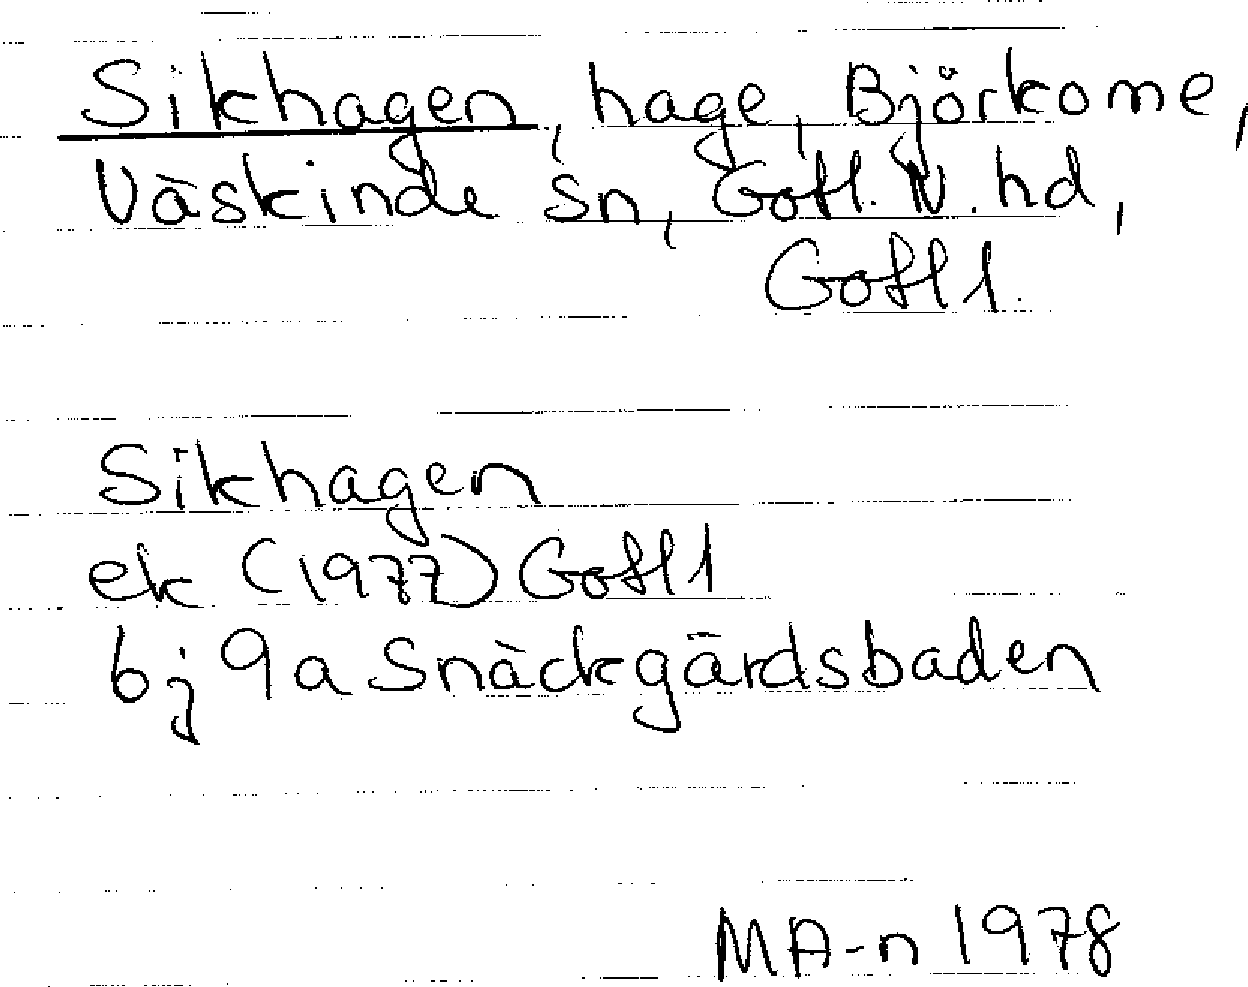 Sikhagen, hage, Björkome,
Väskinde sn, Gotl. N. hd,
Gotl l.
Sikhagen
ek (1977) Gotl l
bj 9a Snäckgärdsbaden
MA-n 1978